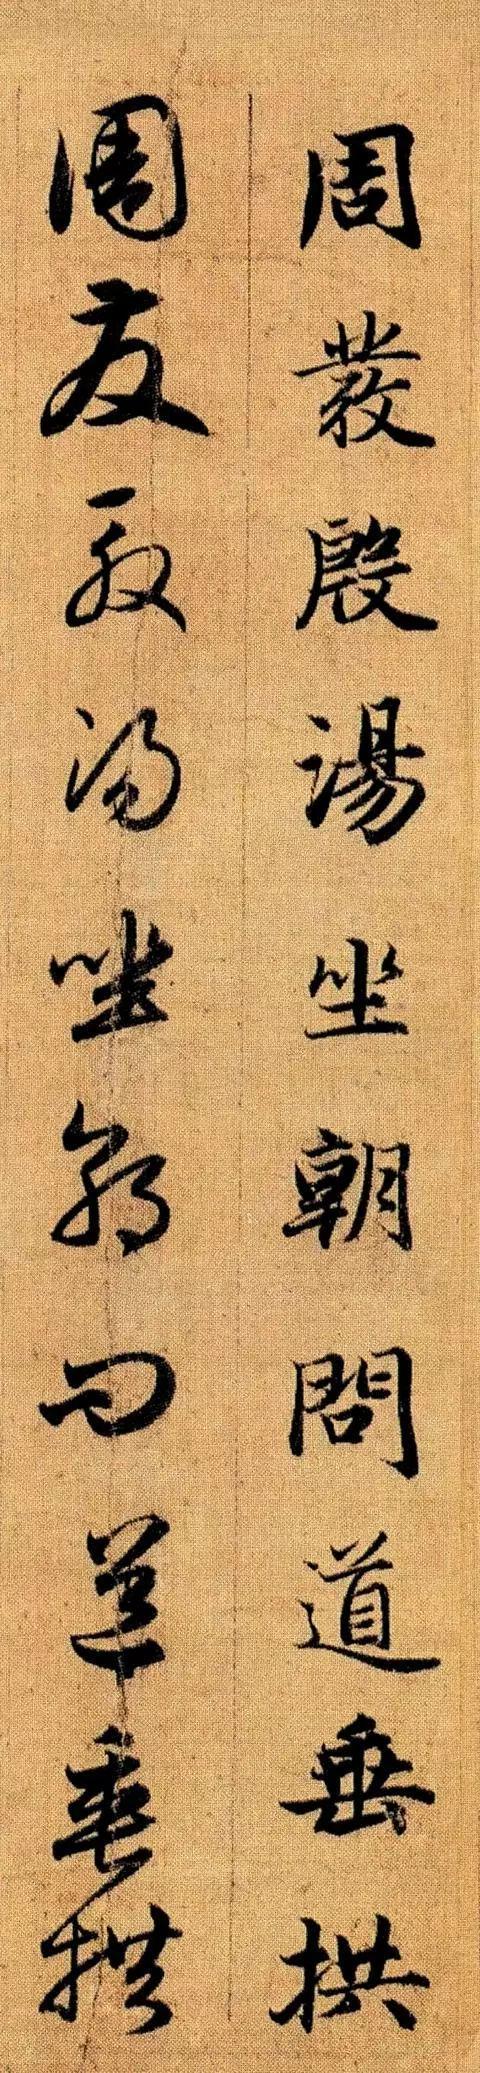 周發殷湯坐朝問道垂拱
周发殷湯坐朝问道垂拱